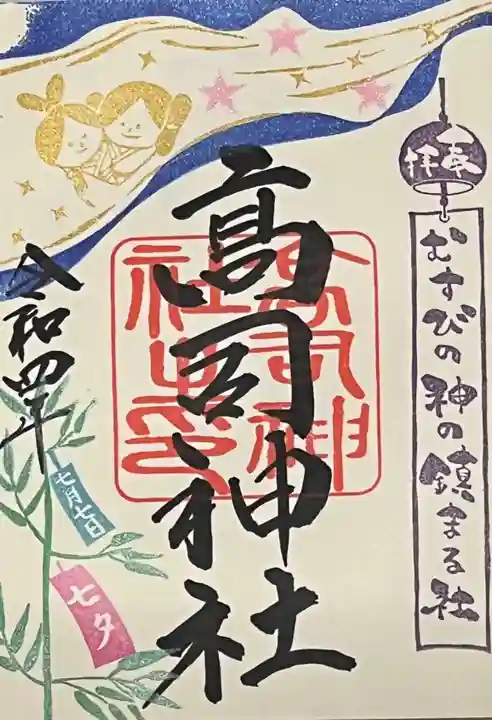 奉拝
むすびの神の鎮まる社
高司神社
高司神社之印
令和四年
七月七日
七夕